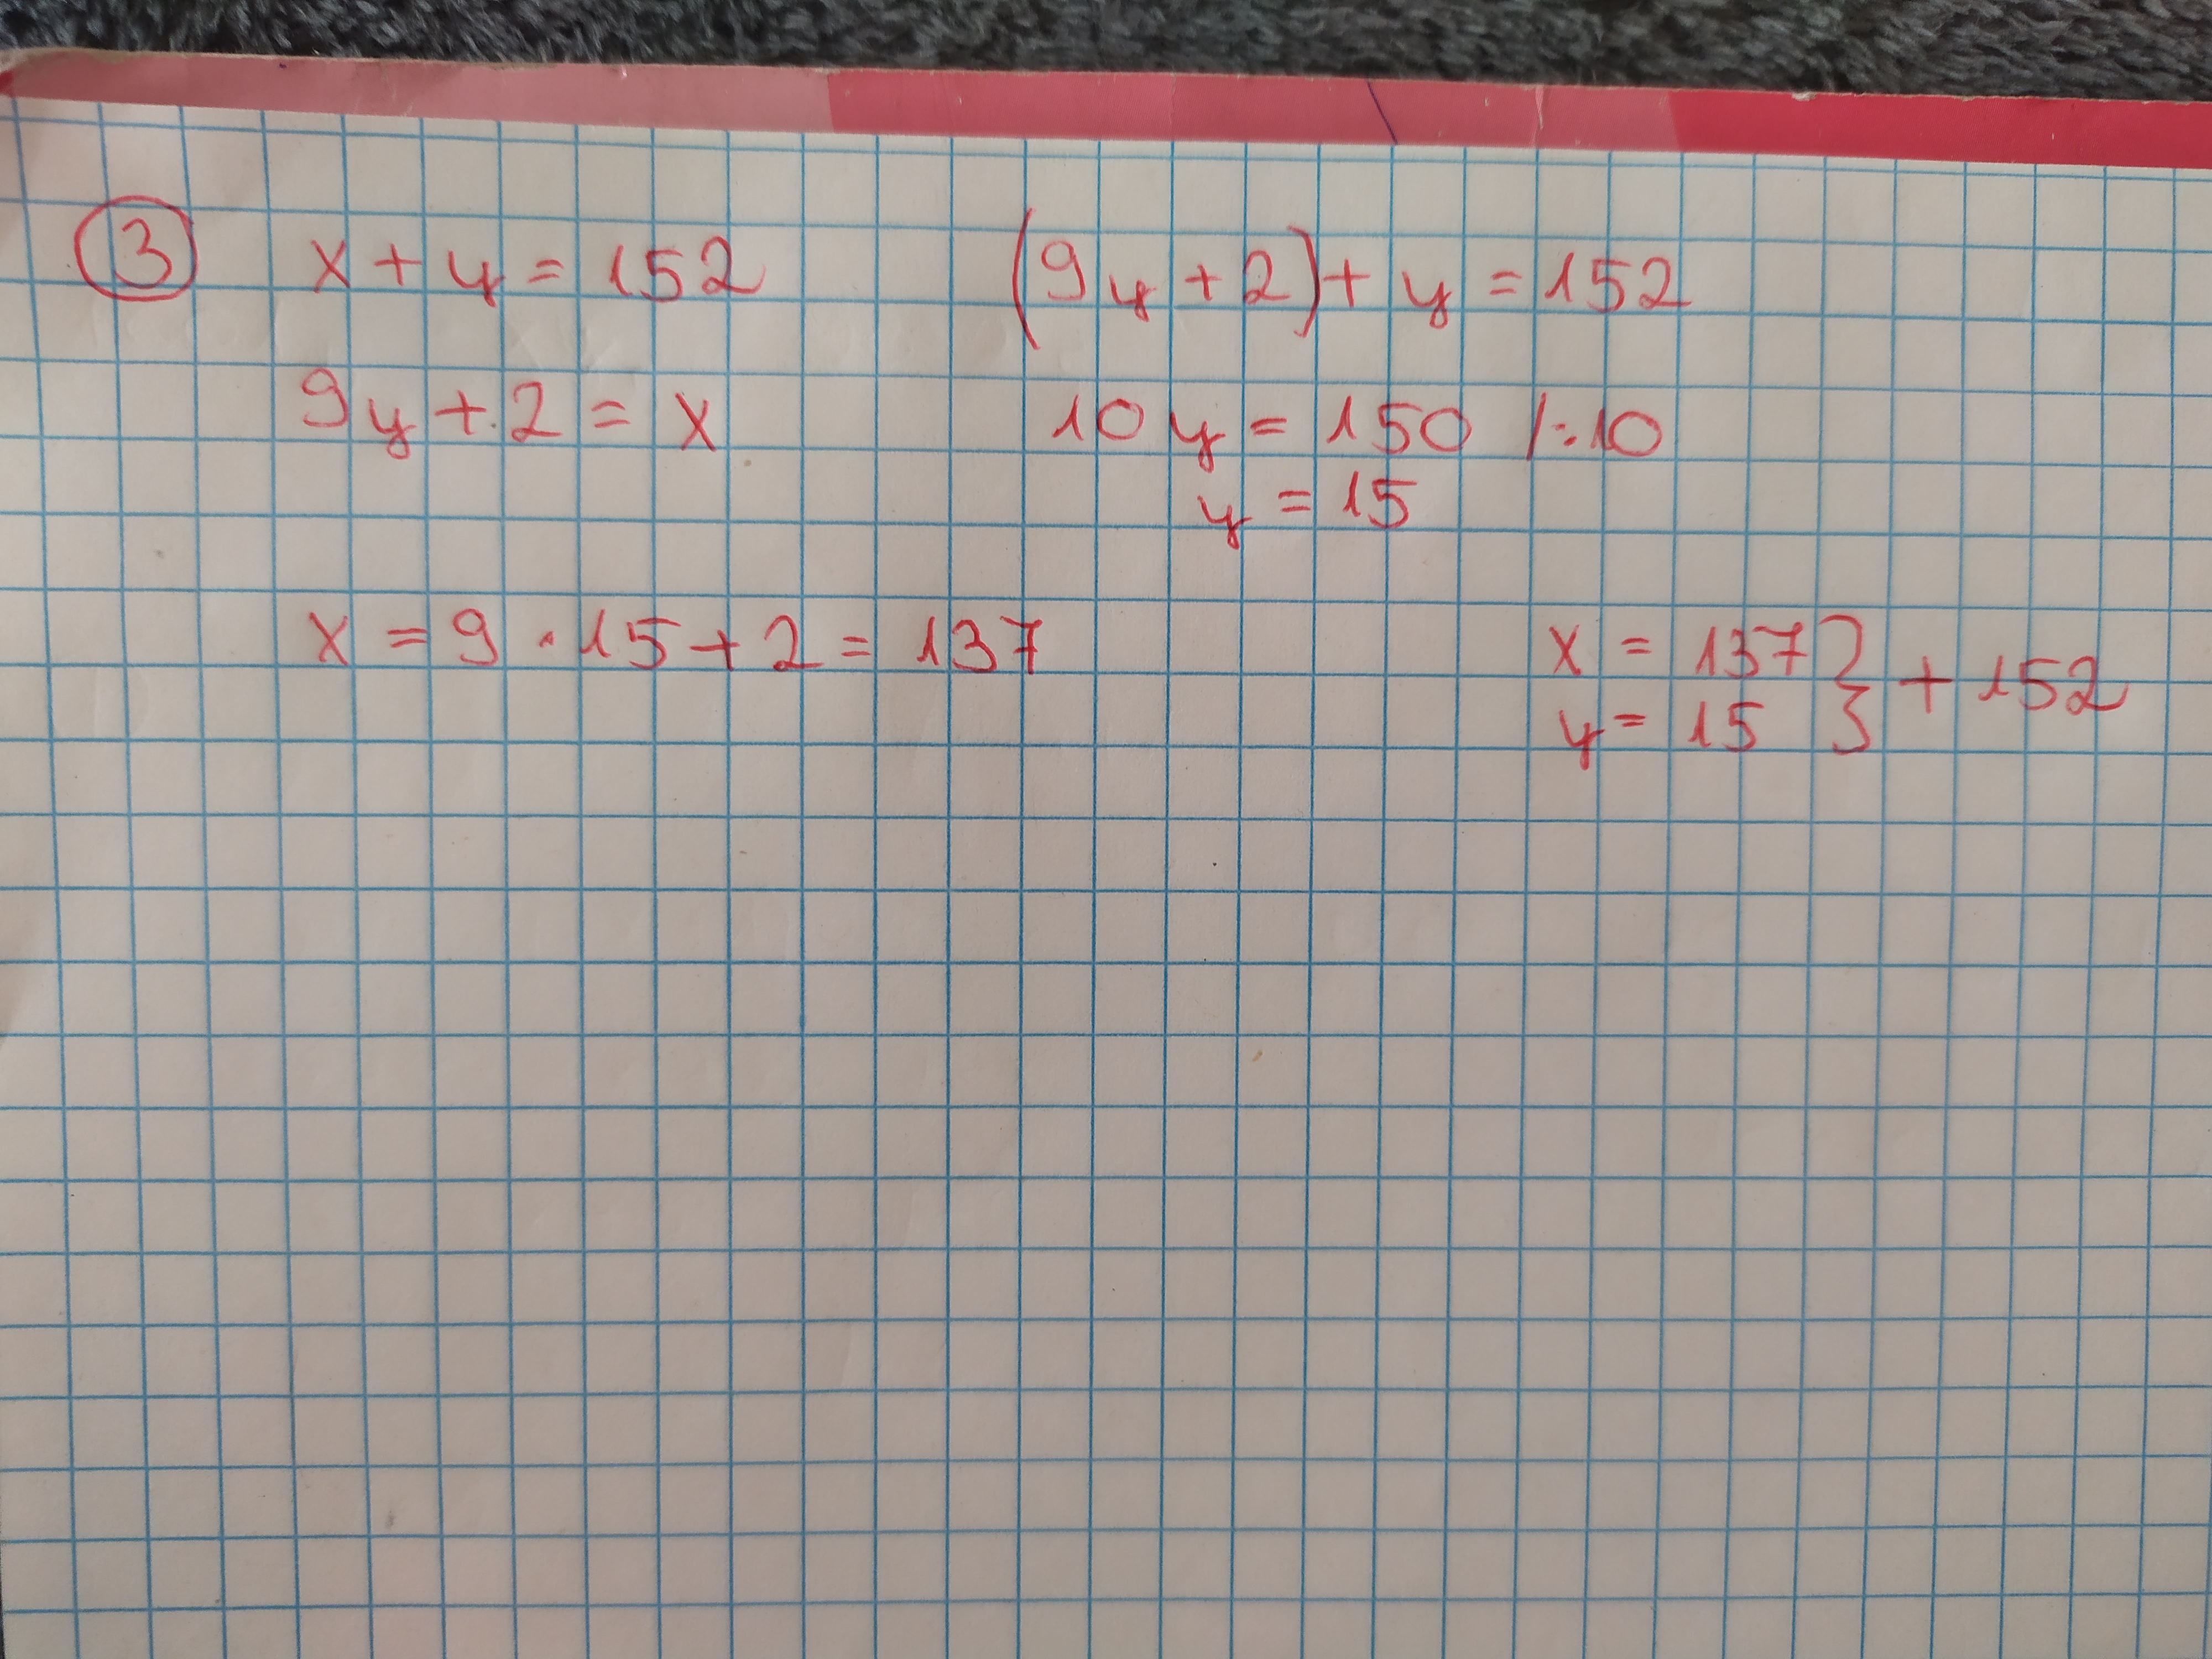 3
x + y = 152
9y + 2 = x
(9y + 2) + y = 152
10y = 150 /:10
y = 15
x = 9 · 15 + 2 = 137
x = 137 } + 152
y = 15